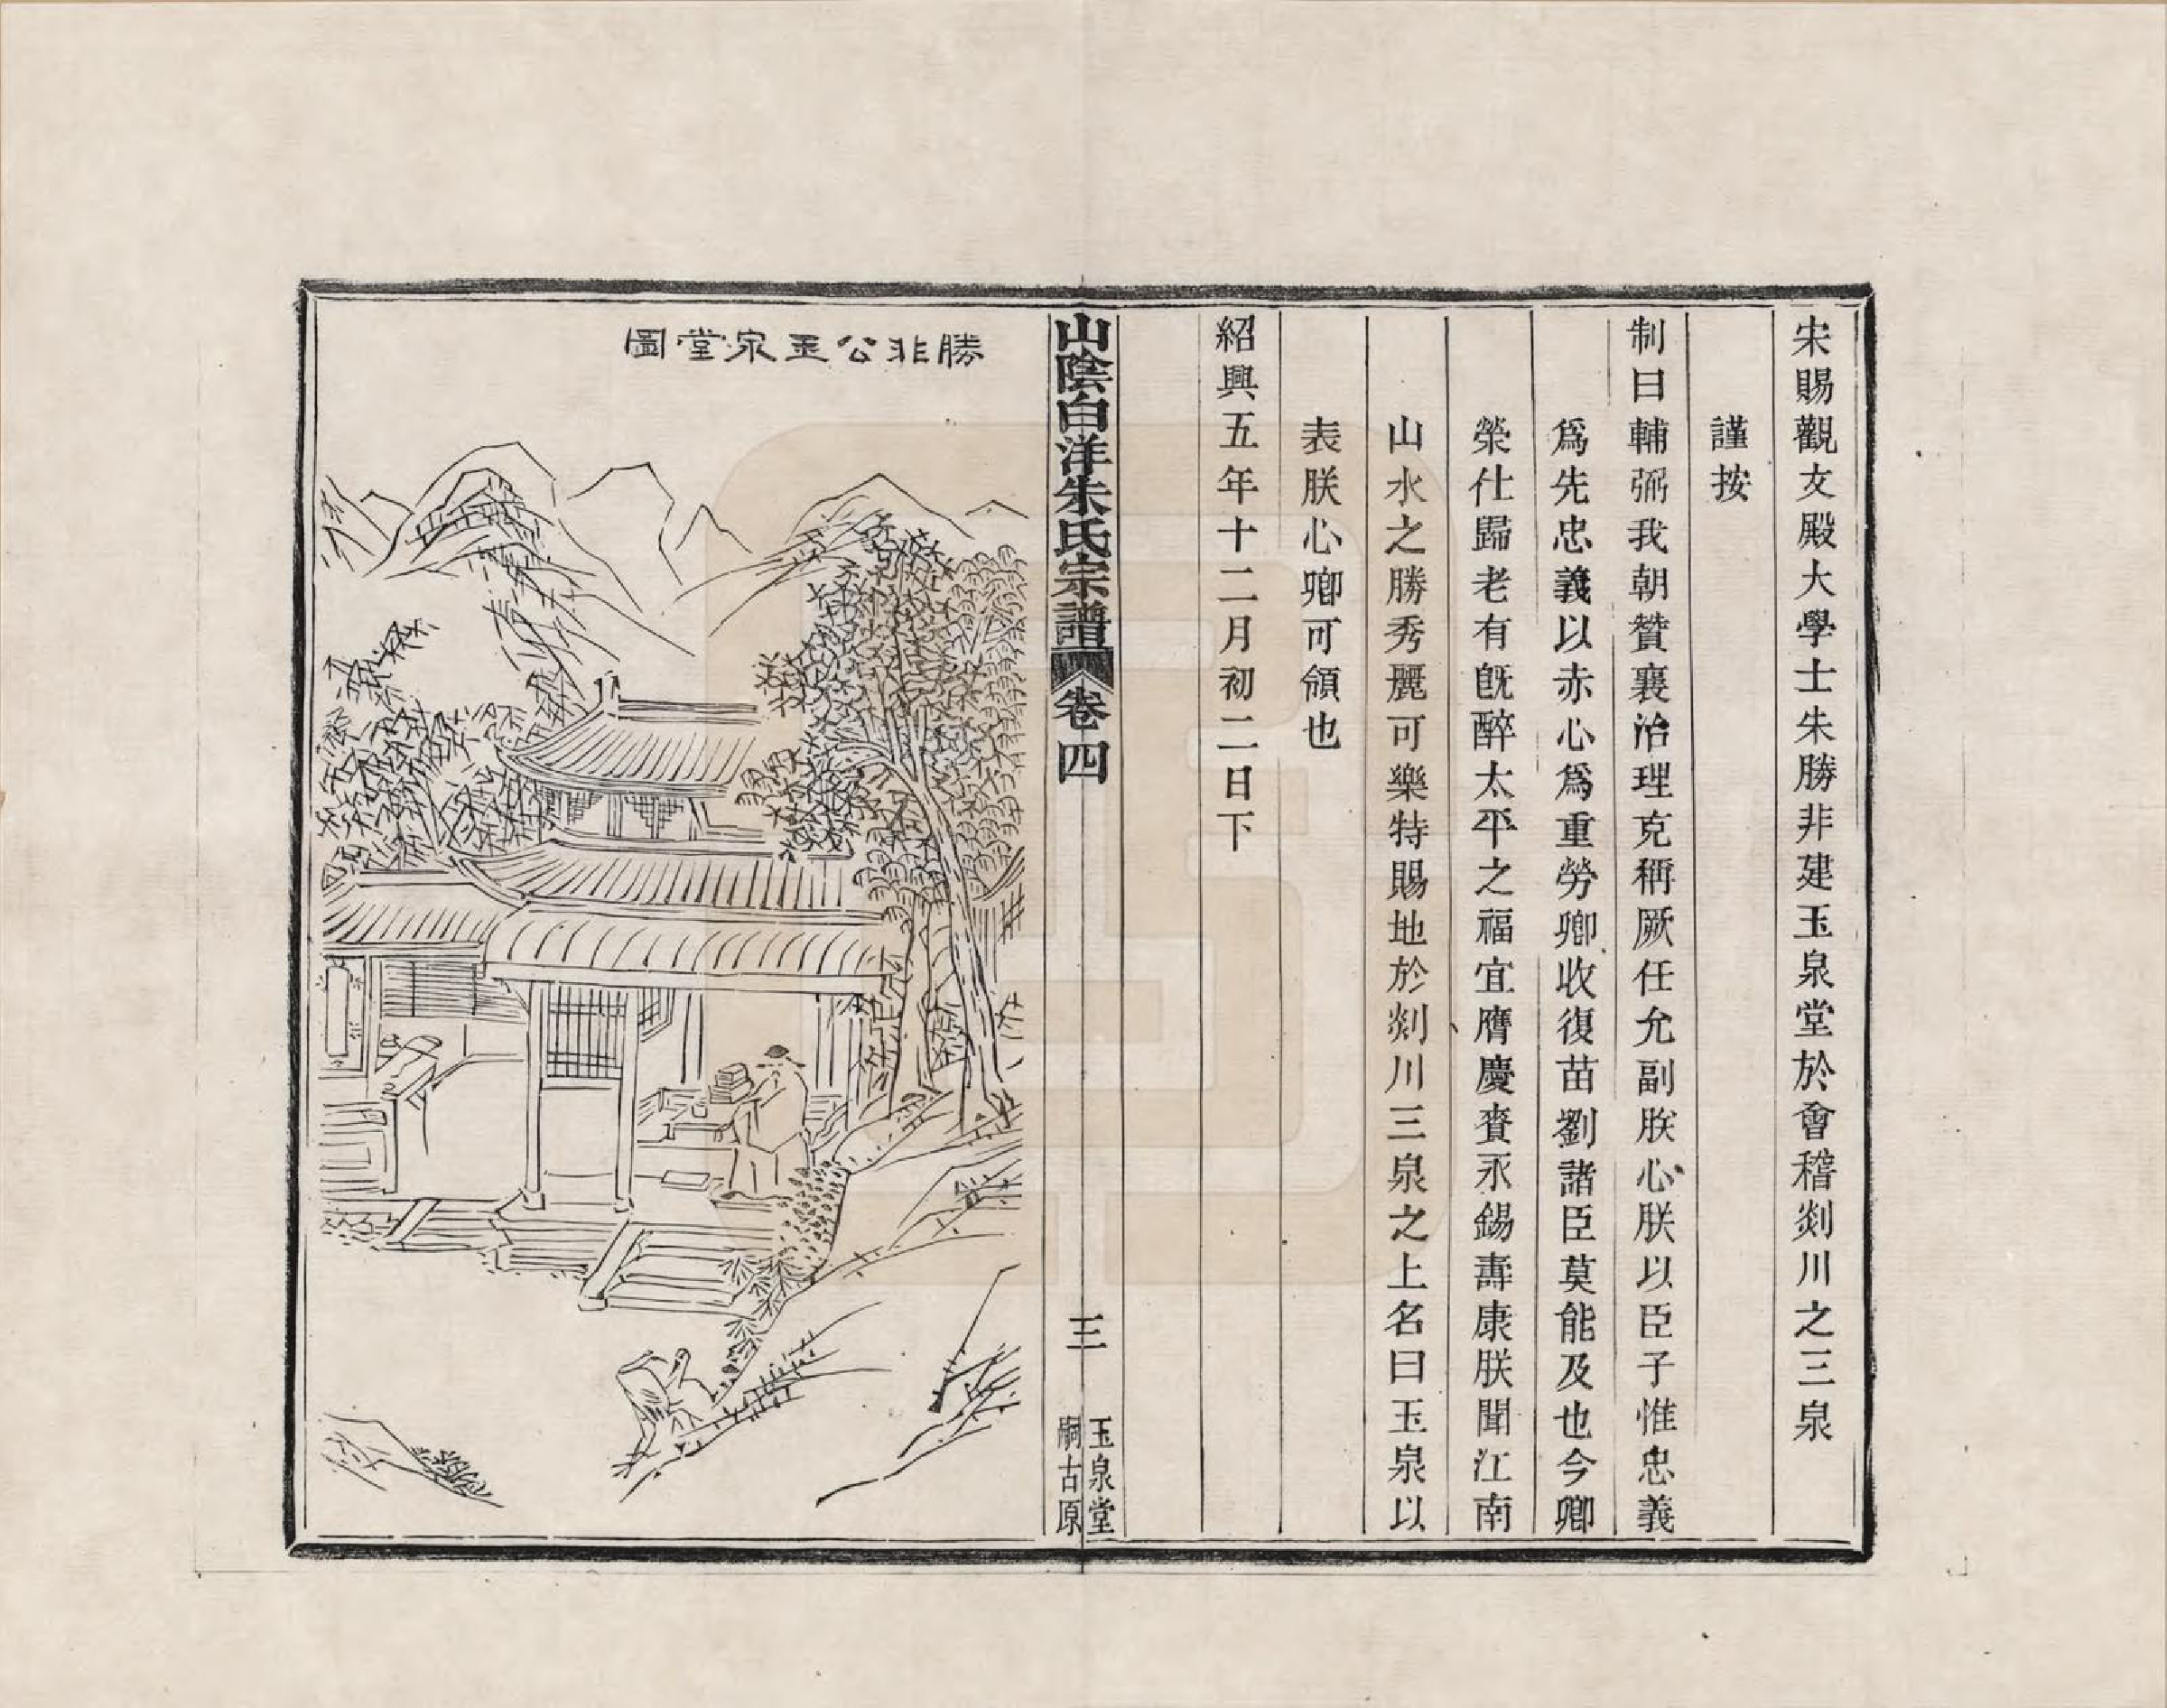 宋賜觀文殿大學士朱勝非建玉泉堂於會稽剡川之三泉
謹按
制曰輔弼我朝贊襄治理克稱厥任允副朕心朕以臣子惟忠義
爲先忠義以赤心爲重勞卿收復苗劉諸臣莫能及也今卿
榮仕歸老有旣醉太平之福宜膺慶賚永錫壽康朕聞江南
山水之勝秀麗可樂特賜地於剡川三泉之上名曰玉泉以
表朕心卿可領也
紹興五年十二月初二日下
山陰白洋朱氏宗譜 卷四
三
玉泉堂
嗣古原
勝非公玉泉堂圖